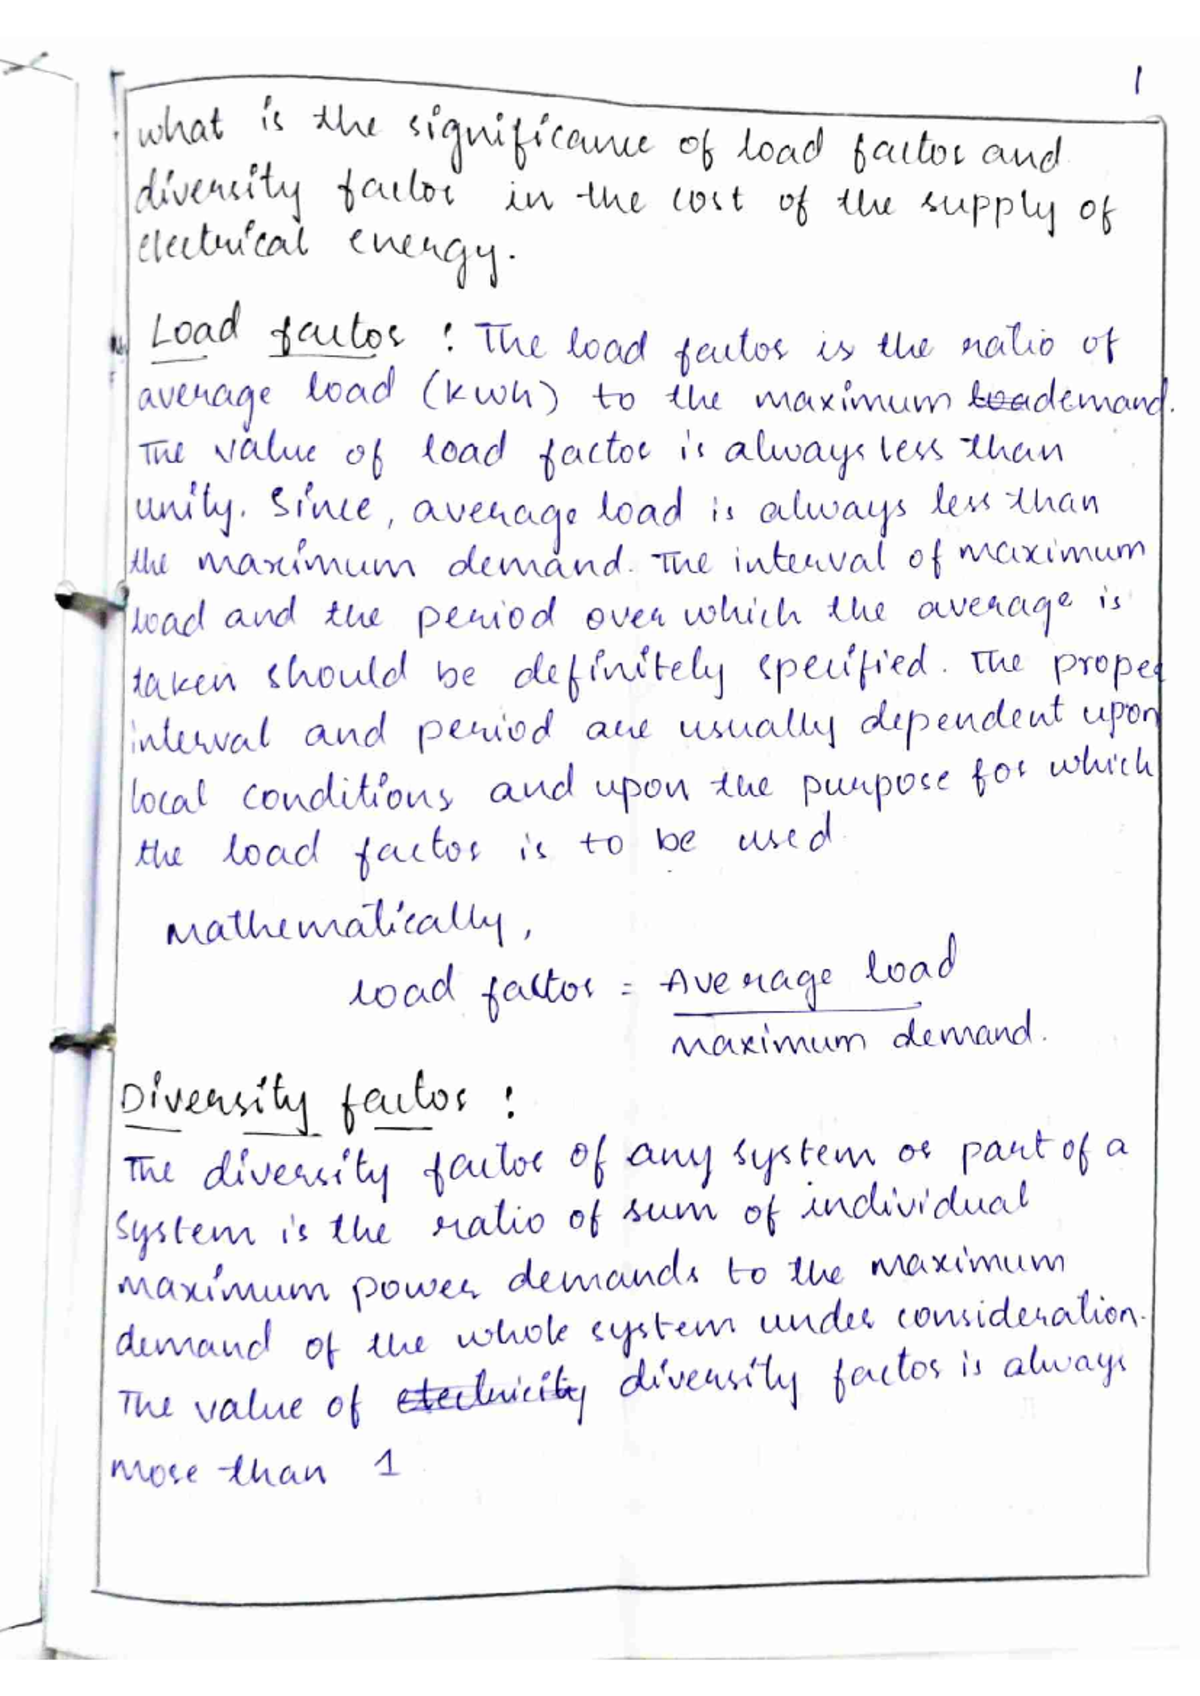 1
what is the significance of load factor and
diversity factor in the cost of the supply of
electrical energy.
Load factor : The load factor is the ratio of
average load (kwh) to the maximum loa demand.
The value of load factor is always less than
unity. Since, average load is always less than
the maximum demand. The interval of maximum
load and the period over which the average is
taken should be definitely specified. The proper
interval and period are usually dependent upon
local conditions and upon the purpose for which
the load factor is to be used.
Mathematically,
load factor = Average load
maximum demand.
Diversity factor :
The diversity factor of any system or part of a
system is the ratio of sum of individual
maximum power demands to the maximum
demand of the whole system under consideration.
The value of electricity diversity factor is always
more than 1